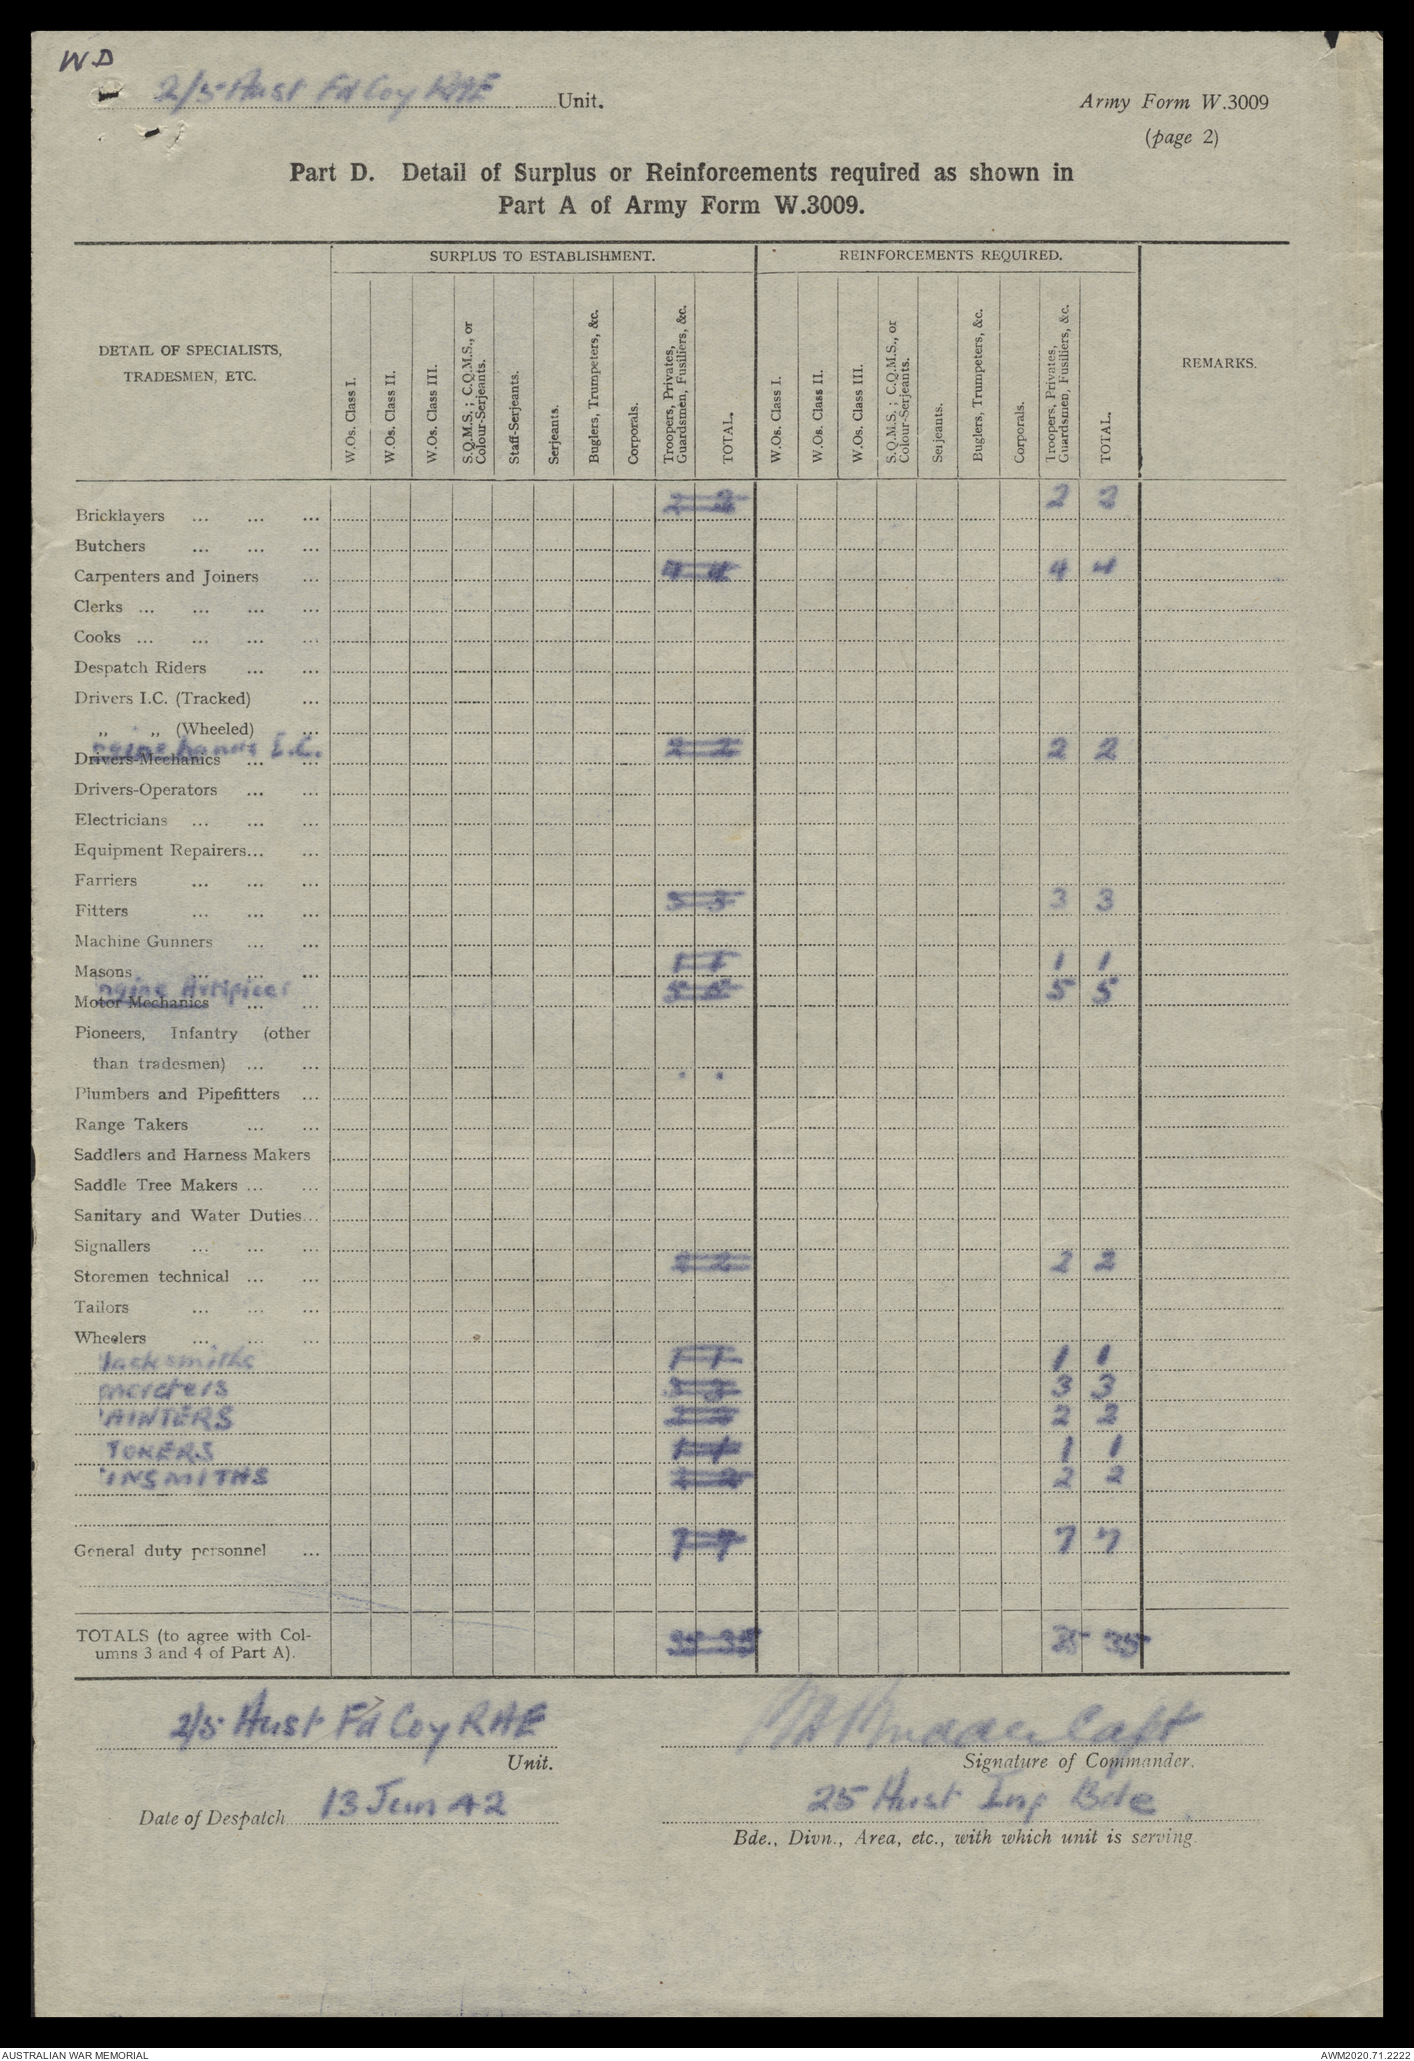 WD
2/5 Aust Fd Coy RAE Unit. Army Form W.3009
(page 2)
Part D. Detail of Surplus or Reinforcements required as shown in
Part A of Army Form W.3009.
DETAIL OF SPECIALISTS, TRADESMEN, ETC.
SURPLUS TO ESTABLISHMENT.
W.Os. Class I.
W.Os. Class II.
W.Os. Class III.
S.Q.M.S.; C.Q.M.S., or Colour-Serjeants.
Staff-Serjeants.
Serjeants.
Buglers, Trumpeters, &c.
Corporals.
Troopers, Privates, Guardsmen, Fusiliers, &c.
TOTAL.
REINFORCEMENTS REQUIRED.
W.Os. Class I.
W.Os. Class II.
W.Os. Class III.
S.Q.M.S.; C.Q.M.S., or Colour-Serjeants.
Serjeants.
Buglers, Trumpeters, &c.
Corporals.
Troopers, Privates, Guardsmen, Fusiliers, &c.
TOTAL.
REMARKS.
Bricklayers ... ... ... 2 2 2 2
Butchers ... ... ...
Carpenters and Joiners ... 4 4 4 4
Clerks ... ... ... ...
Cooks ... ... ... ...
Despatch Riders ... ...
Drivers I.C. (Tracked) ...
„ „ (Wheeled) ...
ngine hands I.C.
Drivers-Mechanics ... ... 2 2 2 2
Drivers-Operators ... ...
Electricians ... ... ...
Equipment Repairers... ...
Farriers ... ... ...
Fitters ... ... ... 3 3 3 3
Machine Gunners ... ...
Masons ... ... ... 1 1 1 1
ngine Artificer
Motor Mechanics ... ... 5 5 5 5
Pioneers, Infantry (other
than tradesmen) ... ...
Plumbers and Pipefitters ...
Range Takers ... ...
Saddlers and Harness Makers
Saddle Tree Makers ... ...
Sanitary and Water Duties...
Signallers ... ... ...
Storemen technical ... ... 2 2 2 2
Tailors ... ... ...
Wheelers ... ... ...
lacksmiths 1 1 1 1
ncreters 3 3 3 3
AINTERS 2 2 2 2
TOKERS 1 1 1 1
INSMITHS 2 2 2 2
General duty personnel ... 7 7 7 7
TOTALS (to agree with Col-
umns 3 and 4 of Part A). 35 35 35 35
2/5 Aust Fd Coy RAE Capt
Unit. Signature of Commander.
Date of Despatch 13 Jun 42 25 Aust Inf Bde
Bde., Divn., Area, etc., with which unit is serving.
AUSTRALIAN WAR MEMORIAL AWM2020.71.2222